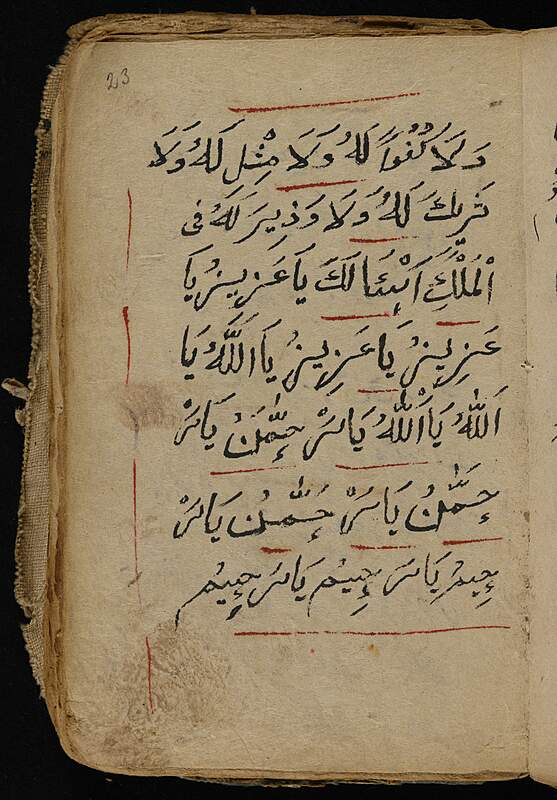 23
وَلَا كُفُواً لَهُ وَلَا مِثْلَ لَهُ وَلَا
شَرِيكَ لَهُ وَلَا وَذِيرَ لَهُ فِى
الْمُلْكِ اَسْئَالُكَ يَا عَزِيزُ يَا
عَزِيزُ يَا عَزِيزُ يَا اَللّٰهُ يَا
اَللّٰهُ يَا اَللّٰهُ يَا رَ حْمٰنُ يَا رَ
حْمٰنُ يَا رَ حْمٰنُ يَا رَ
حِيمُ يَا رَ حِيمُ يَا رَ حِيمُ